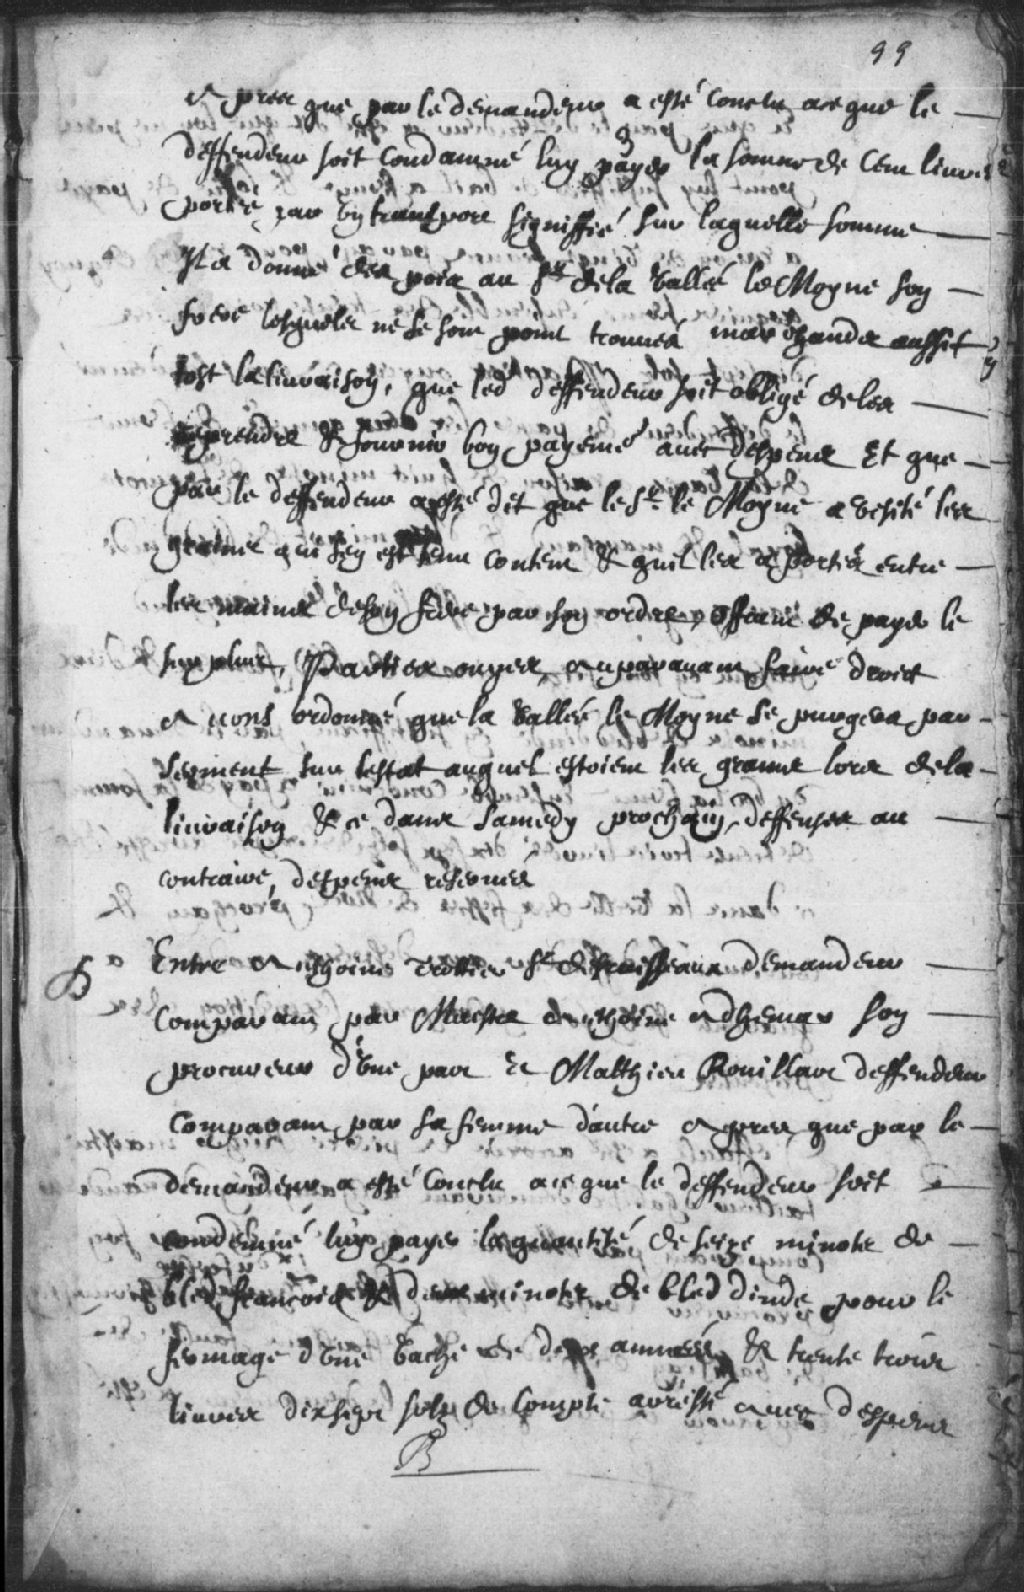 99
Apres que par le demandeur a esté Conclu ace que le
deffendeur soit Condamné luy payer la somme de Cent livres
portée par un transport signiffié sur laquelle somme
Il a donné des pois au Sr dela Vallée le Moyne son
frere lesquels ne se sont point trouués marchands aussit
tost la liuraison, que led deffendeur soit obligé deles
reprendre & fournir bon payemt auec despens Et que
par le deffendeur a esté dit que le Sr le Moyne a visité les
grains qui sen est tenu content & quil les a portés entre
les mains deson frere par son ordre, offrant de payer le
surplus, Parties ouyes, auparauant faire droit
Auons ordonné que la Vallée le Moyne Se purgera par
serment sur lestat auquel estoient les grains lors dela
liuraison & ce dans Samedy prochain, deffenses au
contraire, despens reserués
Entre Anthoine Trottier Sr desruisseaux demandeur
Comparant par Maistre Anthoine Adhemar son
procureur d'une part Et Matthieu Rouillard deffendeur
Comparant par sa femme d'autre Apres que par le
demandeur a esté Conclu ace que le deffendeur soit
condemné luy payer la quantité de seize minots de
bled françois & deux minots de bled dinde pour le
fermage d'une Vache de deux années & trente trois
liures dixsept sols de Compte arresté auec despens
B